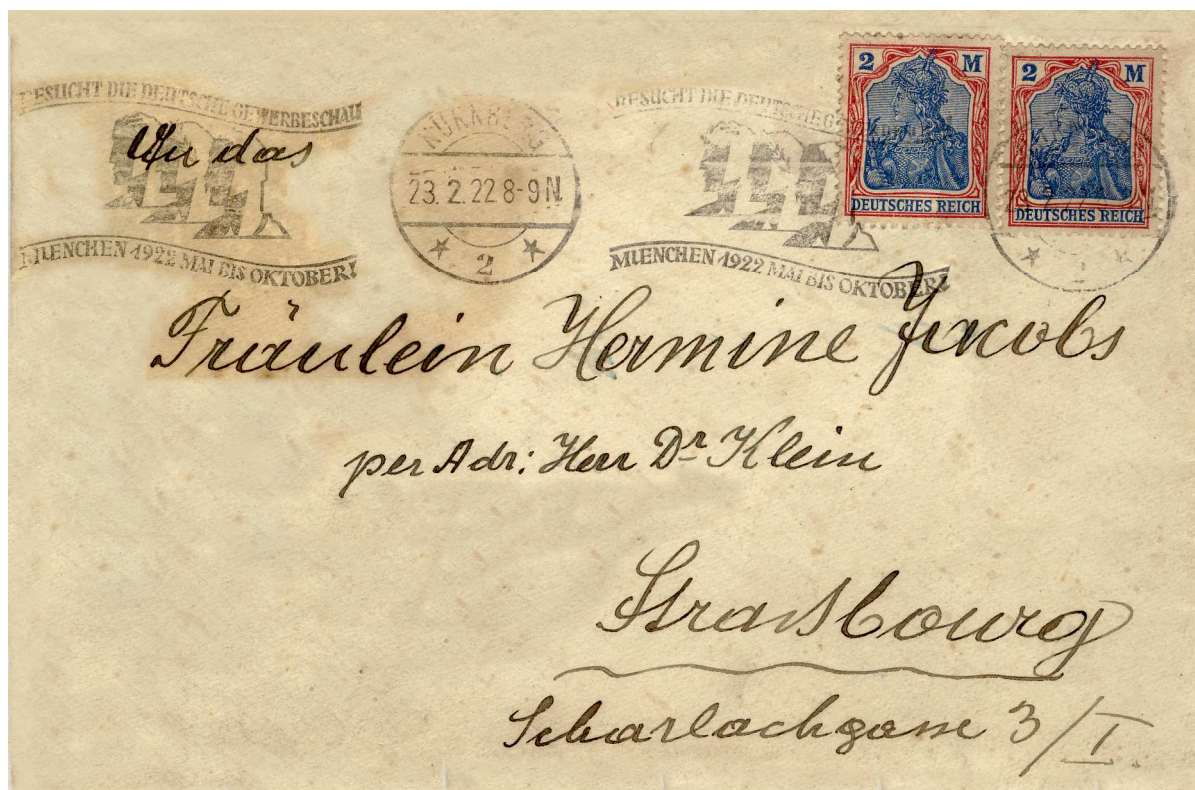 BESUCHT DIE DEUTSCHE GEWERBESCHAU
MUENCHEN 1922 MAI BIS OKTOBER!
NÜRNBERG
23.2.22.8-9N.
2
BESUCHT DIE DEUTSCHE G
MUENCHEN 1922 MAI BIS OKTOBER!
2 M
DEUTSCHES REICH
2 M
DEUTSCHES REICH
An das
Fräulein Hermine Jacobs
per Adr: Herr Dr Klein
Straßbourg
Scharlachgasse 3/I.